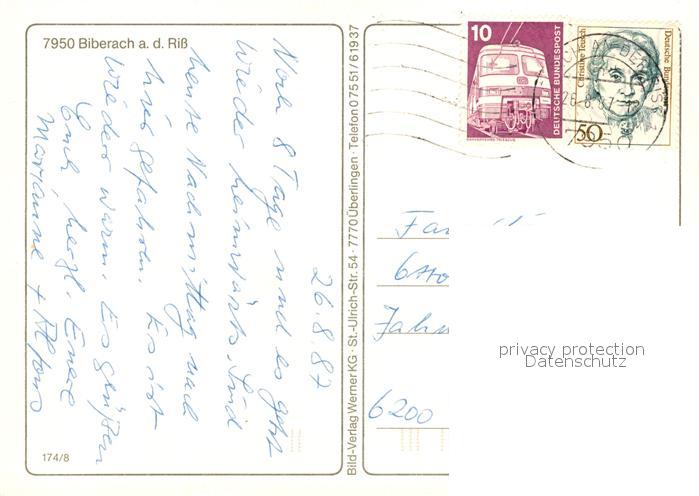 7950 Biberach a. d. Riß
26.8.87
Noch 8 Tage und es geht
wieder heimwärts. Sind
heute Nachmittag nach
hier gefahren. Es ist
wieder warm. Es grüßen
Euch herzl. Eure
Marianne + Alfons
174/8
Bild-Verlag Werner KG · St.-Ulrich-Str. 54 · 7770 Überlingen · Telefon 07551/61937
10
DEUTSCHE BUNDESPOST
Christine Teusch
Deutsche Bundespost
50
Fam
Otto
Jahn
6200
privacy protection
Datenschutz